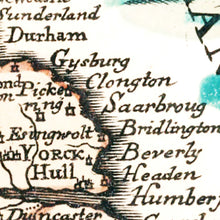 Sunderland
Durham
Gysburg
Clongton
Picke
ring
Saarbroug
Bridlington
Esingwolt
Yorck
Beverly
Hull
Headen
Humber
Duncaster